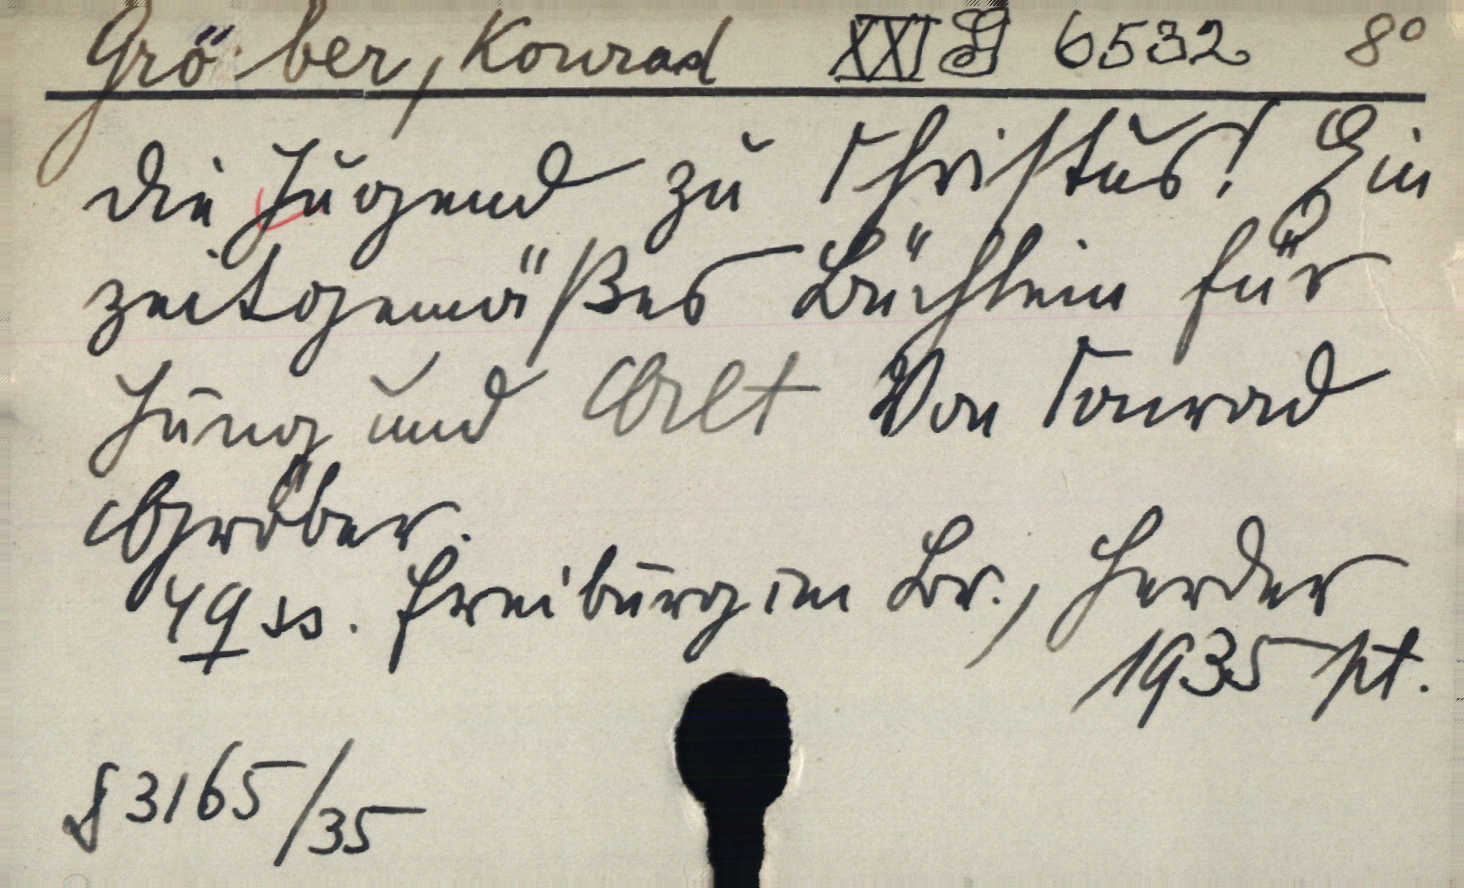 Gröber, Konrad XXI G 6532 8°
Die Jugend zu Christus! Ein
zeitgemäßes Büchlein für
Jung und Alt Von Conrad
Gröber.
49 ss. Freiburg im Br., Herder
1935 pt.
§ 3165/35